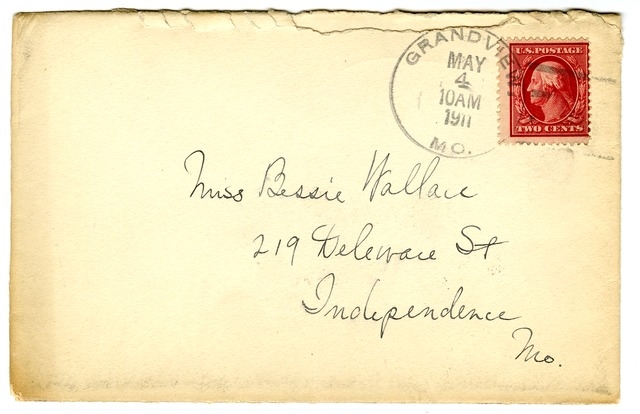 GRANDVIEW
MAY
4
10AM
1911
MO.
U.S. POSTAGE
TWO CENTS
Miss Bessie Wallace
219 Deleware St
Independence
Mo.